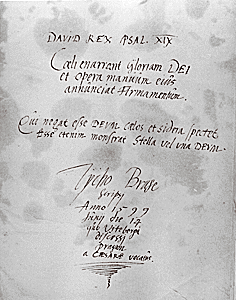 DAVID REX PSAL. XIX
Cœli enarrant Gloriam DEI
et Opera manuum eius
annunciat Firmamentum.
Qui negat esse DEVM cælos et sidera spectet
Esse etenim monstrat Stella vel una DEVM.
Tycho Brahe
scripsi
Anno 1599
Junij die 14
qui Viteberga
discessi
Pragam
a CÆSARE vocatus.